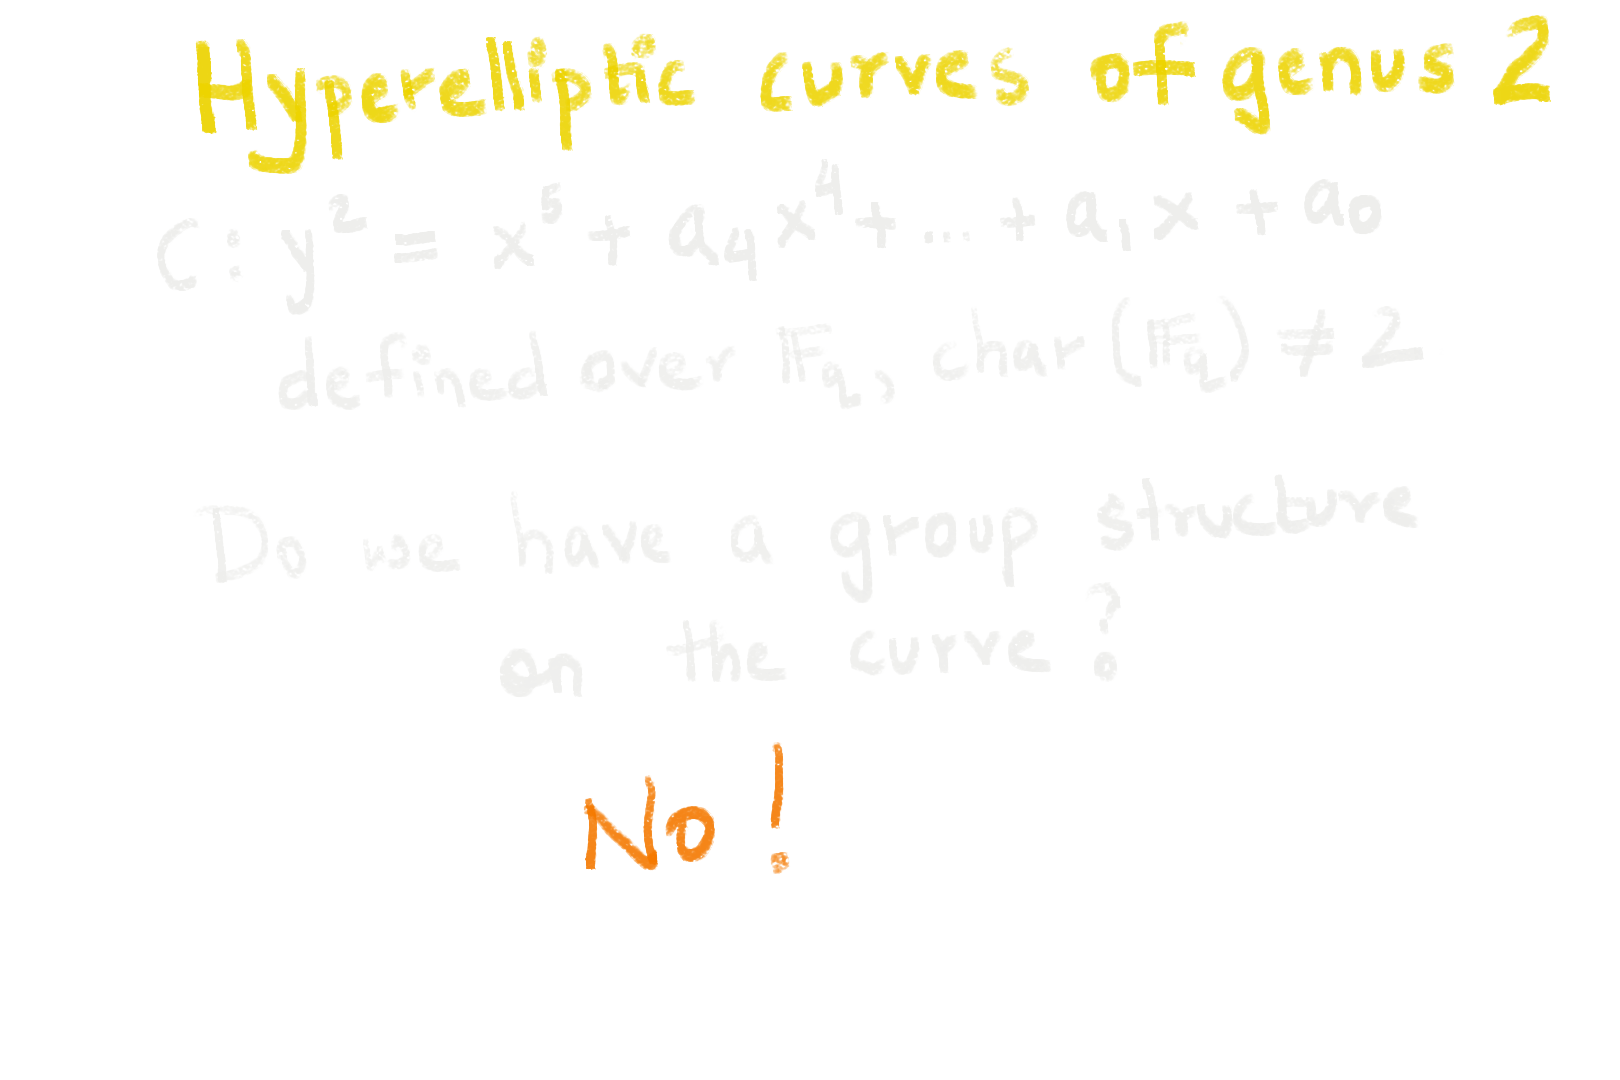 Hyperelliptic curves of genus 2
C: y² = x⁵ + a₄x⁴ + ... + a₁x + a₀
defined over 𝔽q, char(𝔽q) ≠ 2
Do we have a group structure
on the curve?
No!